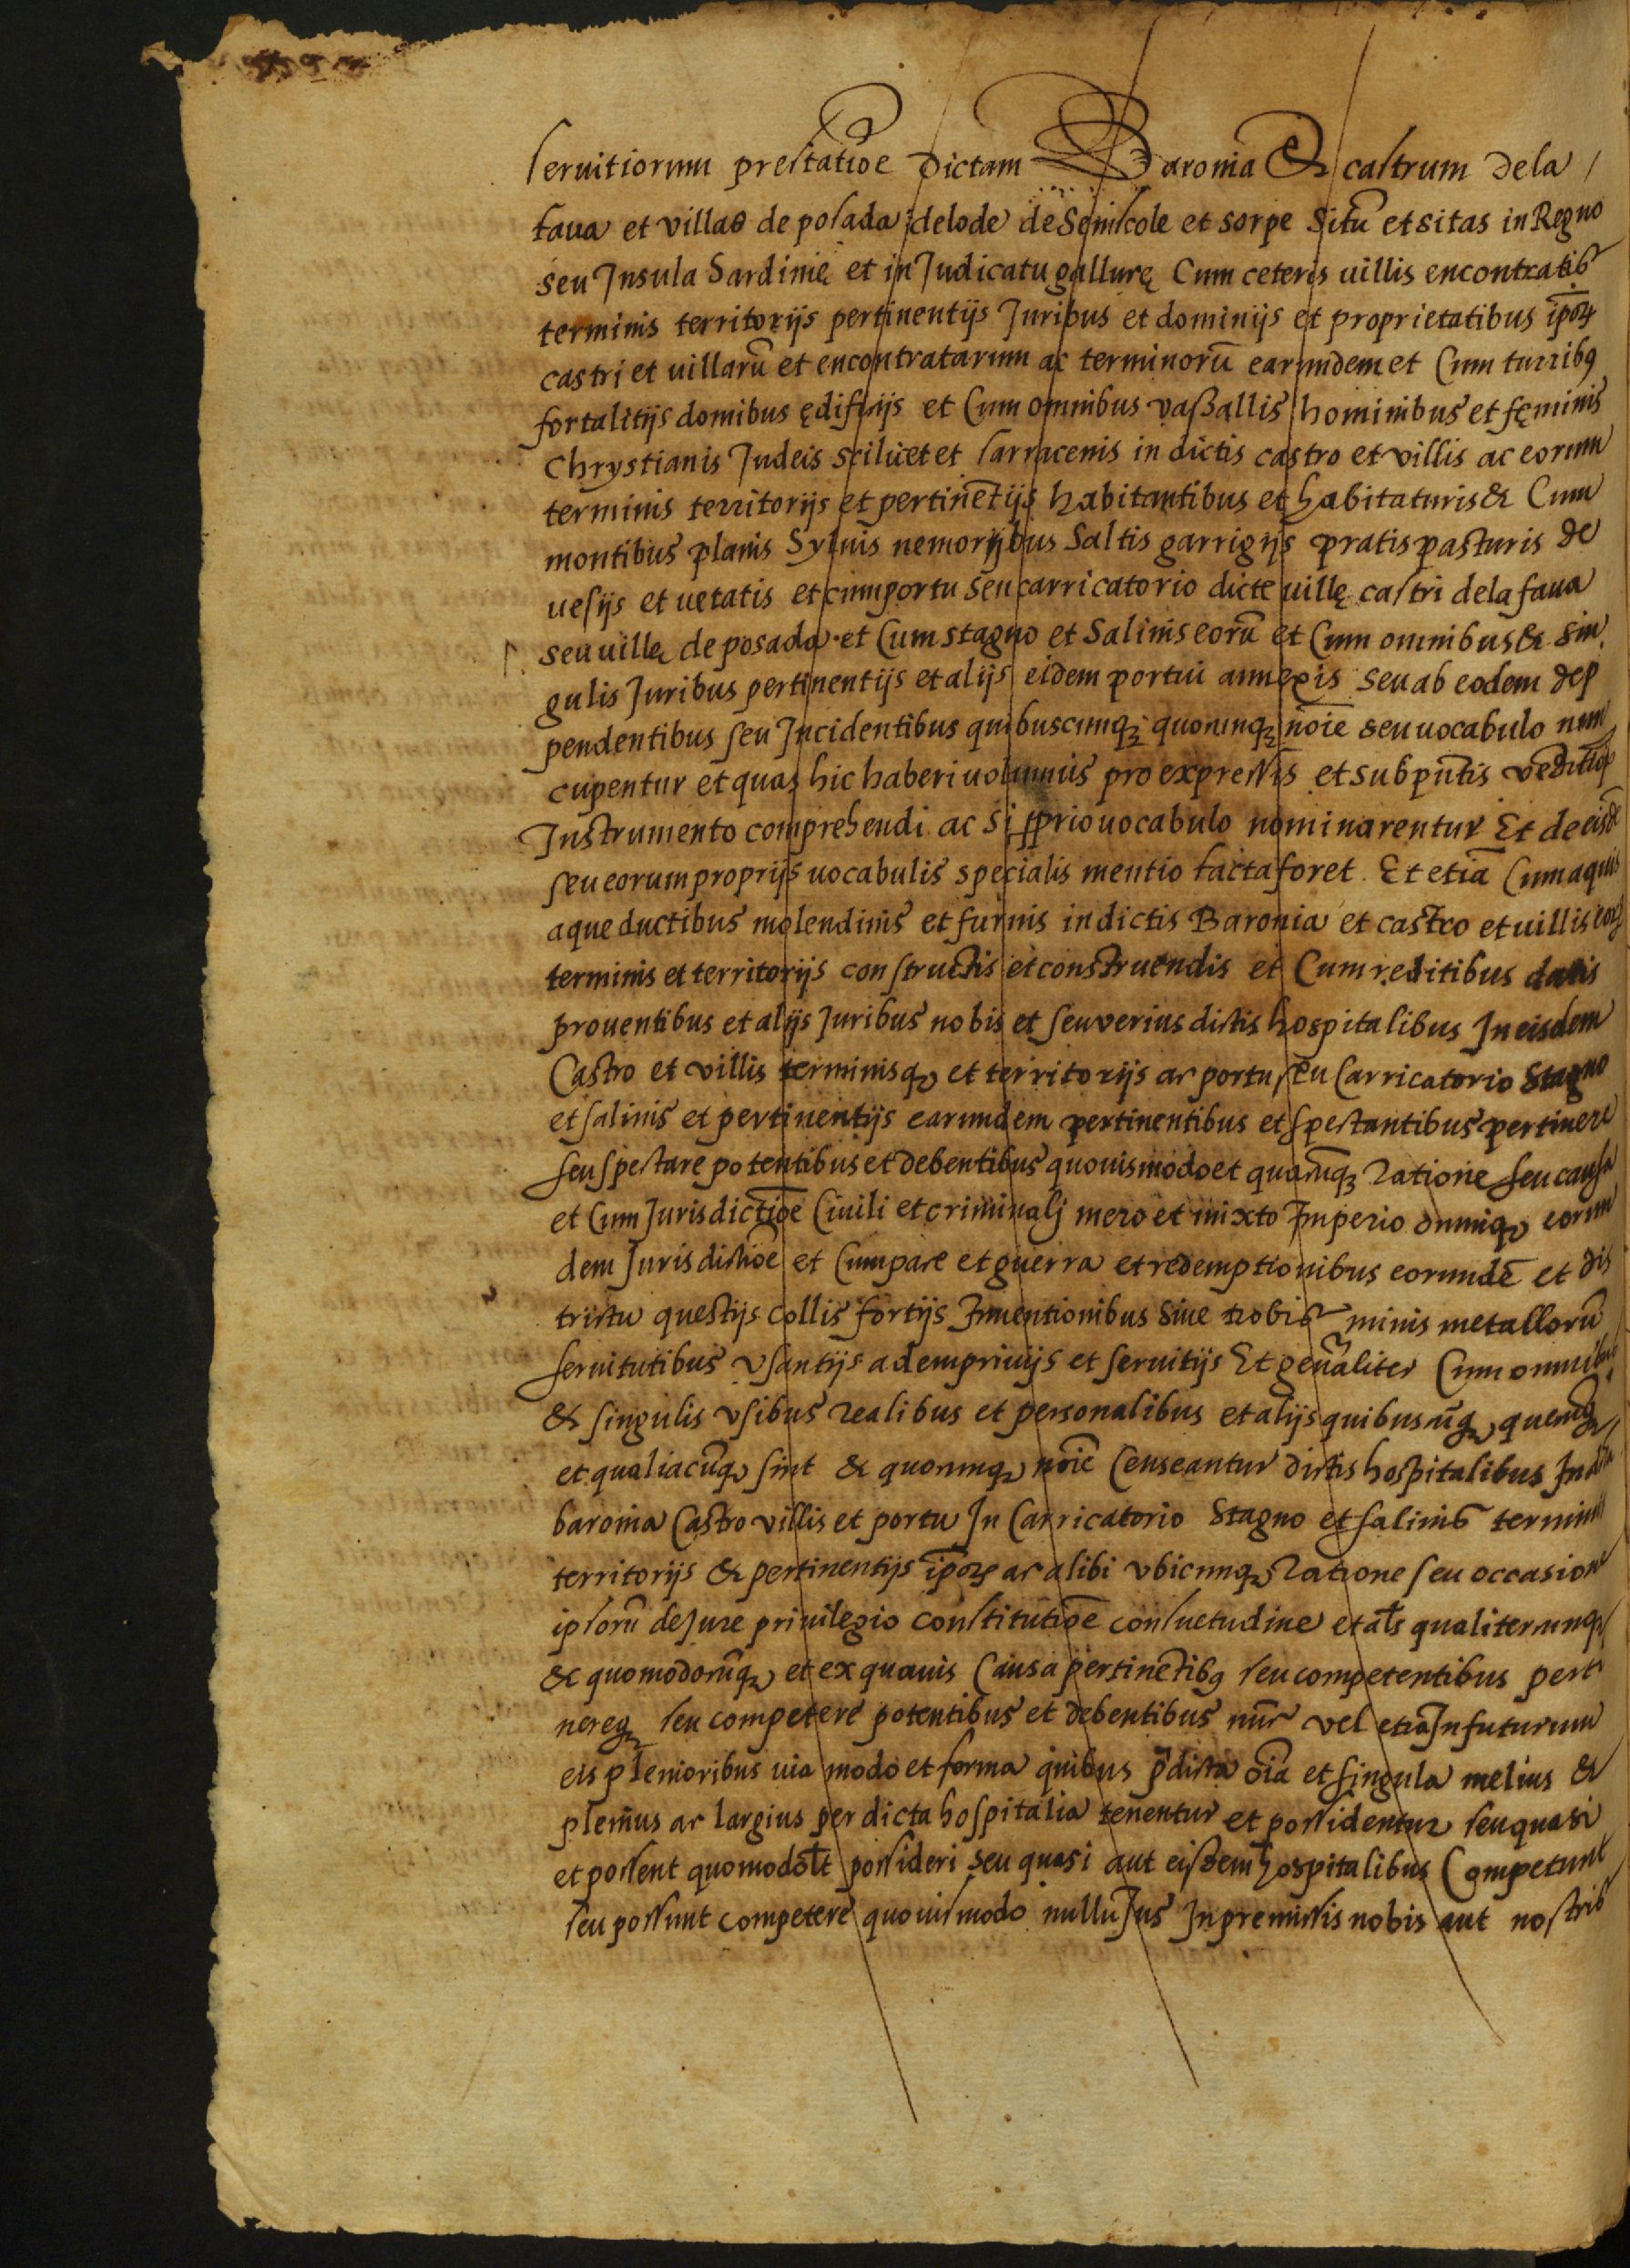 seruitiorum prestatiõe dictam Baronia & castrum dela
faua et villas de posada delode de Seniscole et sorpe Sitũ et sitas in Regno
seu Insula Sardinię et in Judicatu gallurę Cum ceteris uillis encontratis
terminis territorijs pertinentijs Juribus et dominijs et proprietatibus ipõꝝ
castri et uillarũ et encontratarum ac terminorũ earumdem et Cum turribꝯ
fortalitijs domibus ędificijs et Cum omnibus vaßallis hominibus et fęminis
Chrystianis Judeis scilicet et sarracenis in dictis castro et villis ac eorum
terminis territorijs et pertinẽtijs habitantibus et habitaturis & Cum
montibus planis Syluis nemorijbus Saltis garrigijs pratis pasturis de
uesijs et uetatis et cum portu seu carricatorio dicte uillę castri dela faua
seu uillę de posada et Cum stagno et Salinis eorũ et Cum omnibus & sin
gulis Juribus pertinentijs et alijs eidem portui annexis seu ab eodem dep
pendentibus seu Incidentibus quibuscumqꝫ quocumqꝫ noĩe seu uocabulo nun
cupentur et quas hic haberi uolumus pro expressis et sub pñtis vẽditiõis
Instrumento comprehendi ac Si ꝓprio uocabulo nominarentur Et de eisdẽ
seu eorum proprijs uocabulis specialis mentio facta foret. Et etiã Cum aquis
aque ductibus molendinis et furnis in dictis Baronia et castro et uillis eoꝝ
terminis et territorijs constructis et construendis et Cum reditibus datis
prouentibus et alijs Juribus nobis et seu verius dictis hospitalibus In eisdem
Castro et villis terminisqꝫ et territorijs ac portu seu Carricatorio Stagno
et salinis et pertinentijs earumdem pertinentibus et spectantibus pertinere
seu spectare potentibus et debentibus quouismodo et quacũqꝫ ratione seu causa
et Cum Jurisdictiõe Ciuili et criminalj mero et mixto Imperio omniqꝫ eorum
dem Jurisdictiõe et Cum pace et guerra et redemptionibus eorumdẽ et dis
trictu questijs collis fortijs Inuentionibus Siue trobis minis metallorũ
seruitutibus vsantijs ademprivijs et seruitijs Et geñaliter Cum omnibus
& singulis vsibus realibus et personalibus et alijs quibuscũqꝫ quecũqꝫ
et qualiacũqꝫ sint & quocumqꝫ noĩe Censeantur dictis hospitalibus In dicta
baronia Castro villis et portu In Carricatorio Stagno et salinis terminis
territorijs & pertinentijs ipõꝝ ac alibi vbicumqꝫ Ratione seu occasione
ipsorũ de Jure priuilegio constitutiõe consuetudine et aľs qualitercumqꝫ
& quomodocũqꝫ et ex quauis Causa pertinẽtibꝯ seu competentibus perti
nereqꝫ seu competere potentibus et debentibus nũc vel etiã In futurum
eis plenioribus uia modo et forma quibus p̃dicta oĩa et singula melius &
pleñius ac largius per dicta hospitalia tenentur et possidentur seu quasi
et possent quomodolt possideri seu quasi aut eisdem hospitalibus Competunt
seu possunt competere quouismodo nullũ Jus In premissis nobis aut nostris